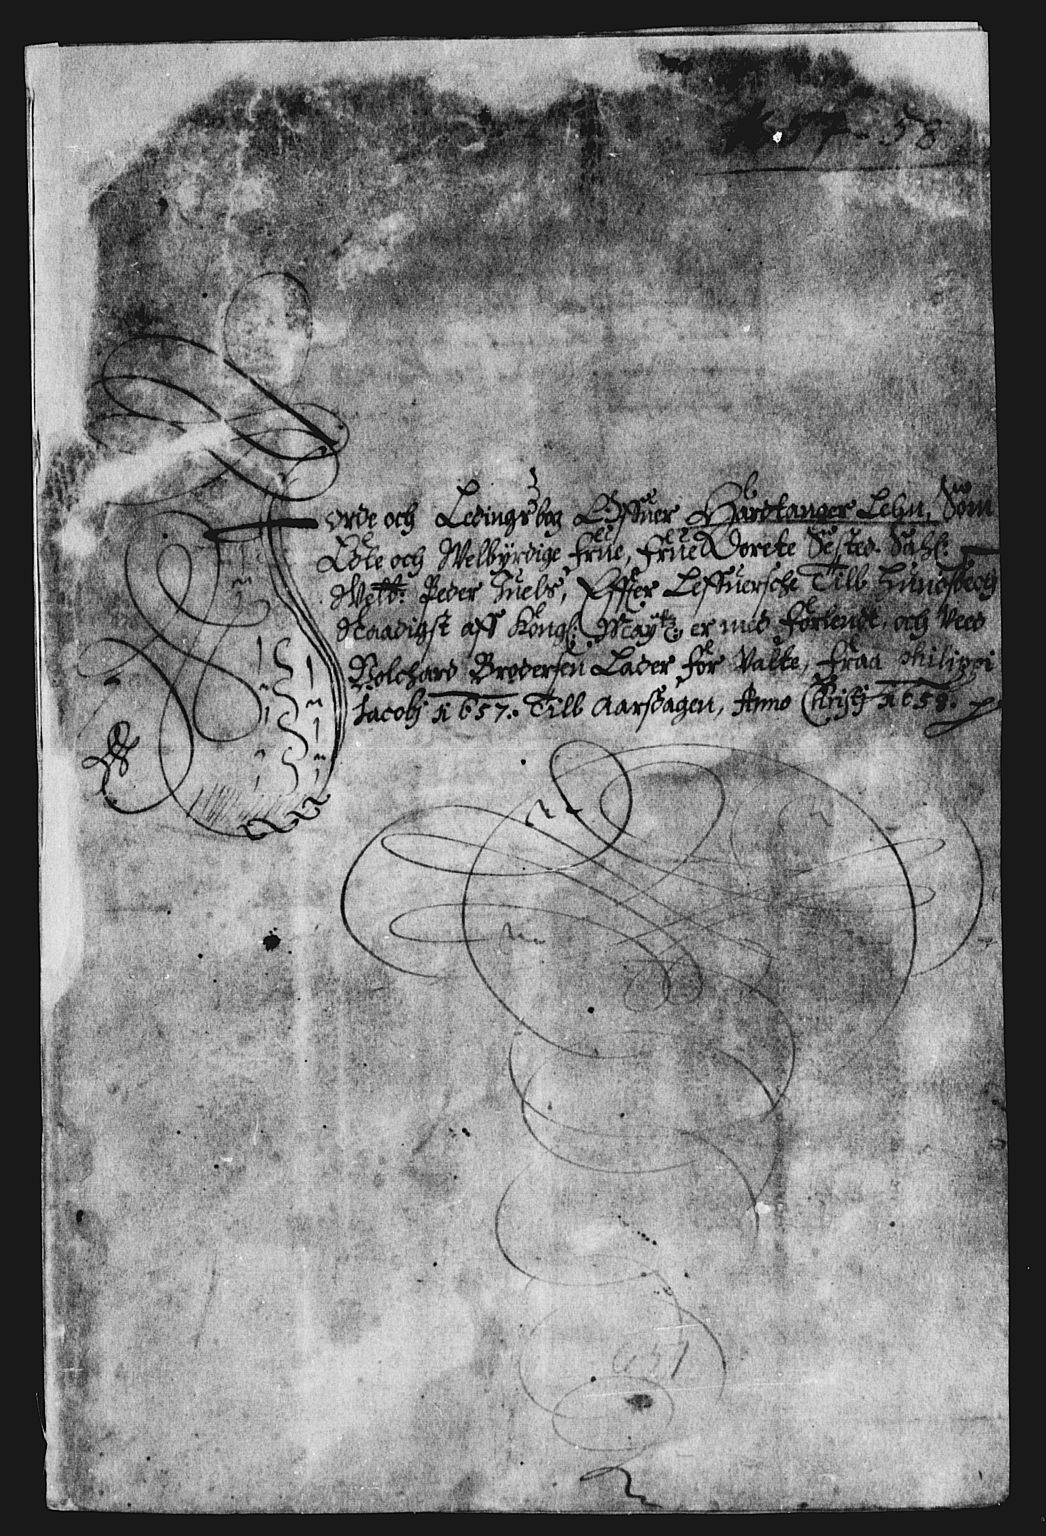 1657-58
Jorde och Ledingsbog Offuer Hardanger Lehn, Som
Edle och Welbÿrdige frue, frue Dorete Sested. Sahl:
Peder Juels, Effter Leffuersche Till Hundsbech
Naadigst aff Kongl: Maÿtz, er med forlendt, och Veed
Brodersen Lader for Valte, fraa philippi
Jacobj 1657. Till Aarsdagen, Anno Christj 1658.